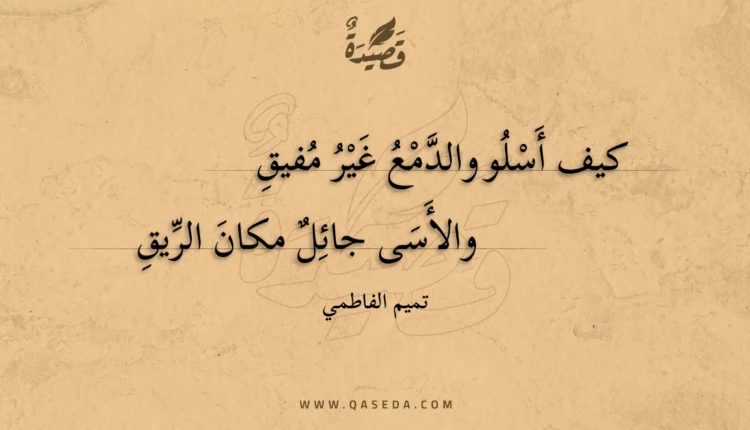 قَصِيدَةٌ
كيف أَسْلُو والدَّمْعُ غَيْرُ مُفيقِ
والأَسَى جائِلٌ مكانَ الرِّيقِ
تميم الفاطمي
WWW.QASEDA.COM